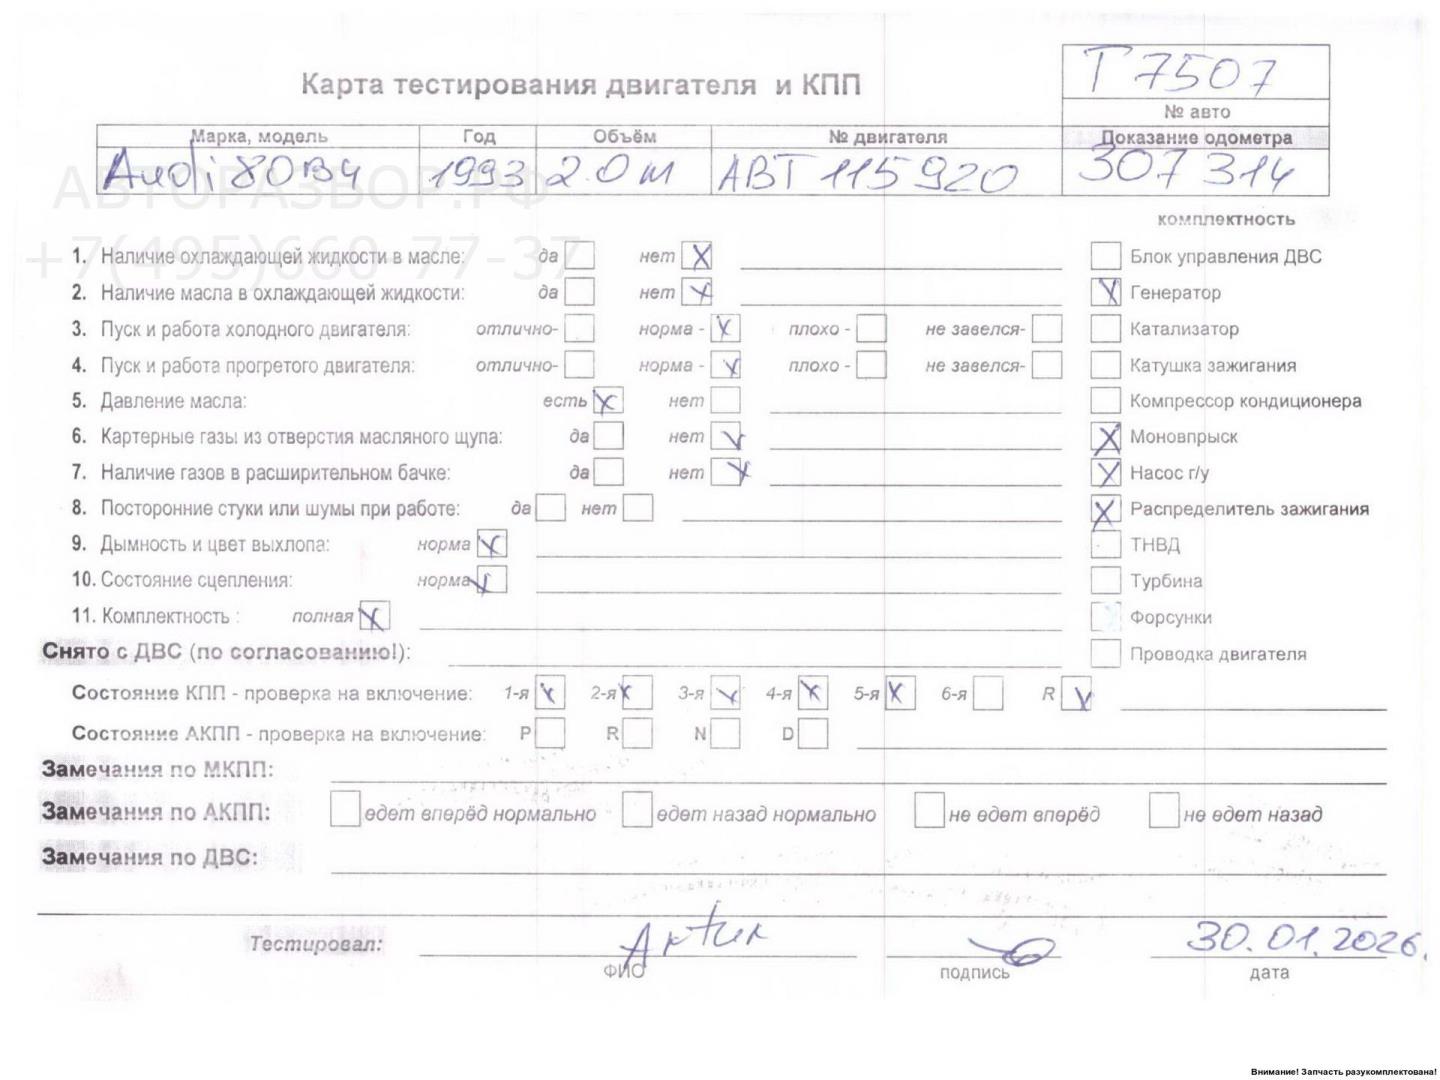 Т 7507
Карта тестирования двигателя и КПП
№ авто
Марка, модель Год Объём № двигателя Доказание одометра
Audi 80B4 1993 2.0 м АВТ 115920 307314
АВТОРАЗБОР.РФ
+7(495)660-77-37
комплектность
1. Наличие охлаждающей жидкости в масле: да нет X Блок управления ДВС
2. Наличие масла в охлаждающей жидкости: да нет X Генератор
3. Пуск и работа холодного двигателя: отлично- норма - X плохо - не завелся- Катализатор
4. Пуск и работа прогретого двигателя: отлично- норма - X плохо - не завелся- Катушка зажигания
5. Давление масла: есть X нет Компрессор кондиционера
6. Картерные газы из отверстия масляного щупа: да нет X Моновпрыск
7. Наличие газов в расширительном бачке: да нет X Насос г/у
8. Посторонние стуки или шумы при работе: да нет Распределитель зажигания
9. Дымность и цвет выхлопа: норма X ТНВД
10. Состояние сцепления: норма X Турбина
11. Комплектность : полная X Форсунки
Снято с ДВС (по согласованию!): Проводка двигателя
Состояние КПП - проверка на включение: 1-я X 2-я X 3-я X 4-я X 5-я X 6-я R X
Состояние АКПП - проверка на включение: P R N D
Замечания по МКПП:
Замечания по АКПП: едет вперёд нормально едет назад нормально не едет вперёд не едет назад
Замечания по ДВС:
Тестировал: Artur 30.01.2026.
ФИО подпись дата
Внимание! Запчасть разукомплектована!